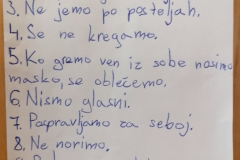 3. Ne jemo po posteljah.
4. Se ne kregamo.
5. Ko gremo ven iz sobe nosimo
masko, se oblečemo.
6. Nismo glasni.
7. Pospravljamo za seboj.
8. Ne norimo.